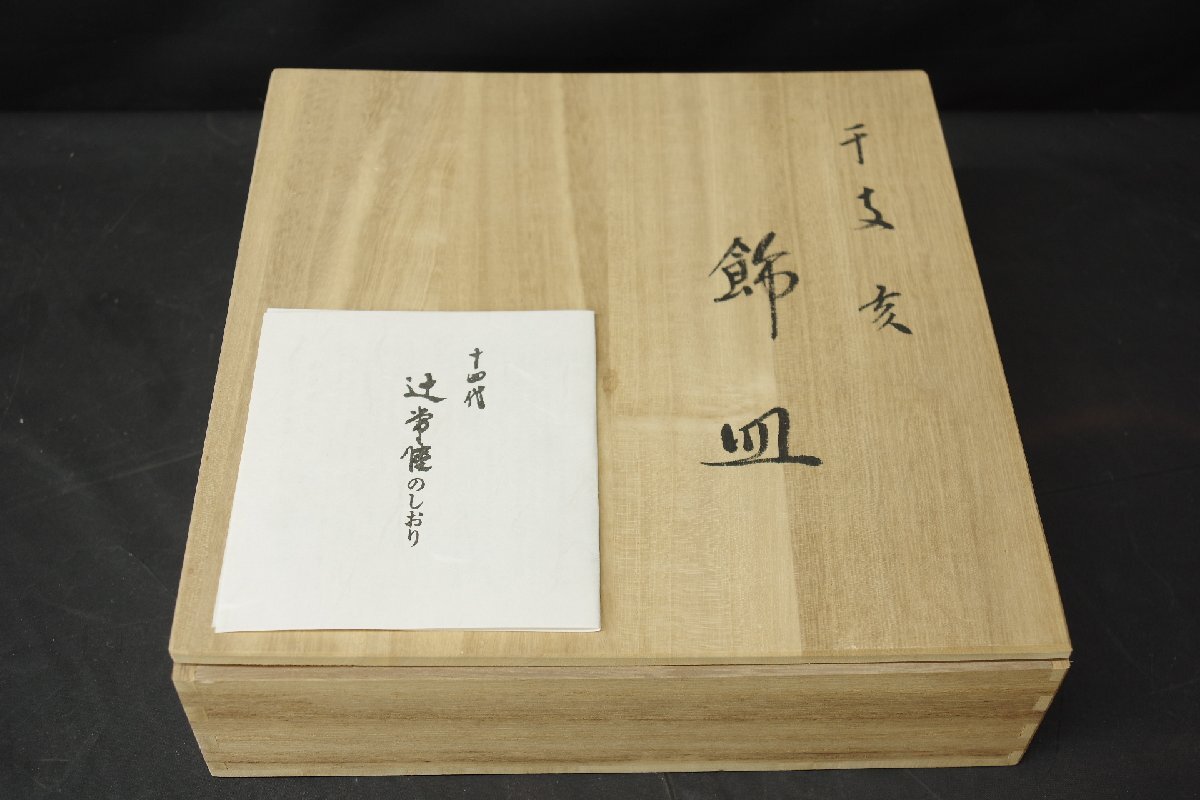 干支亥
飾皿
十四代
辻常陸のしおり